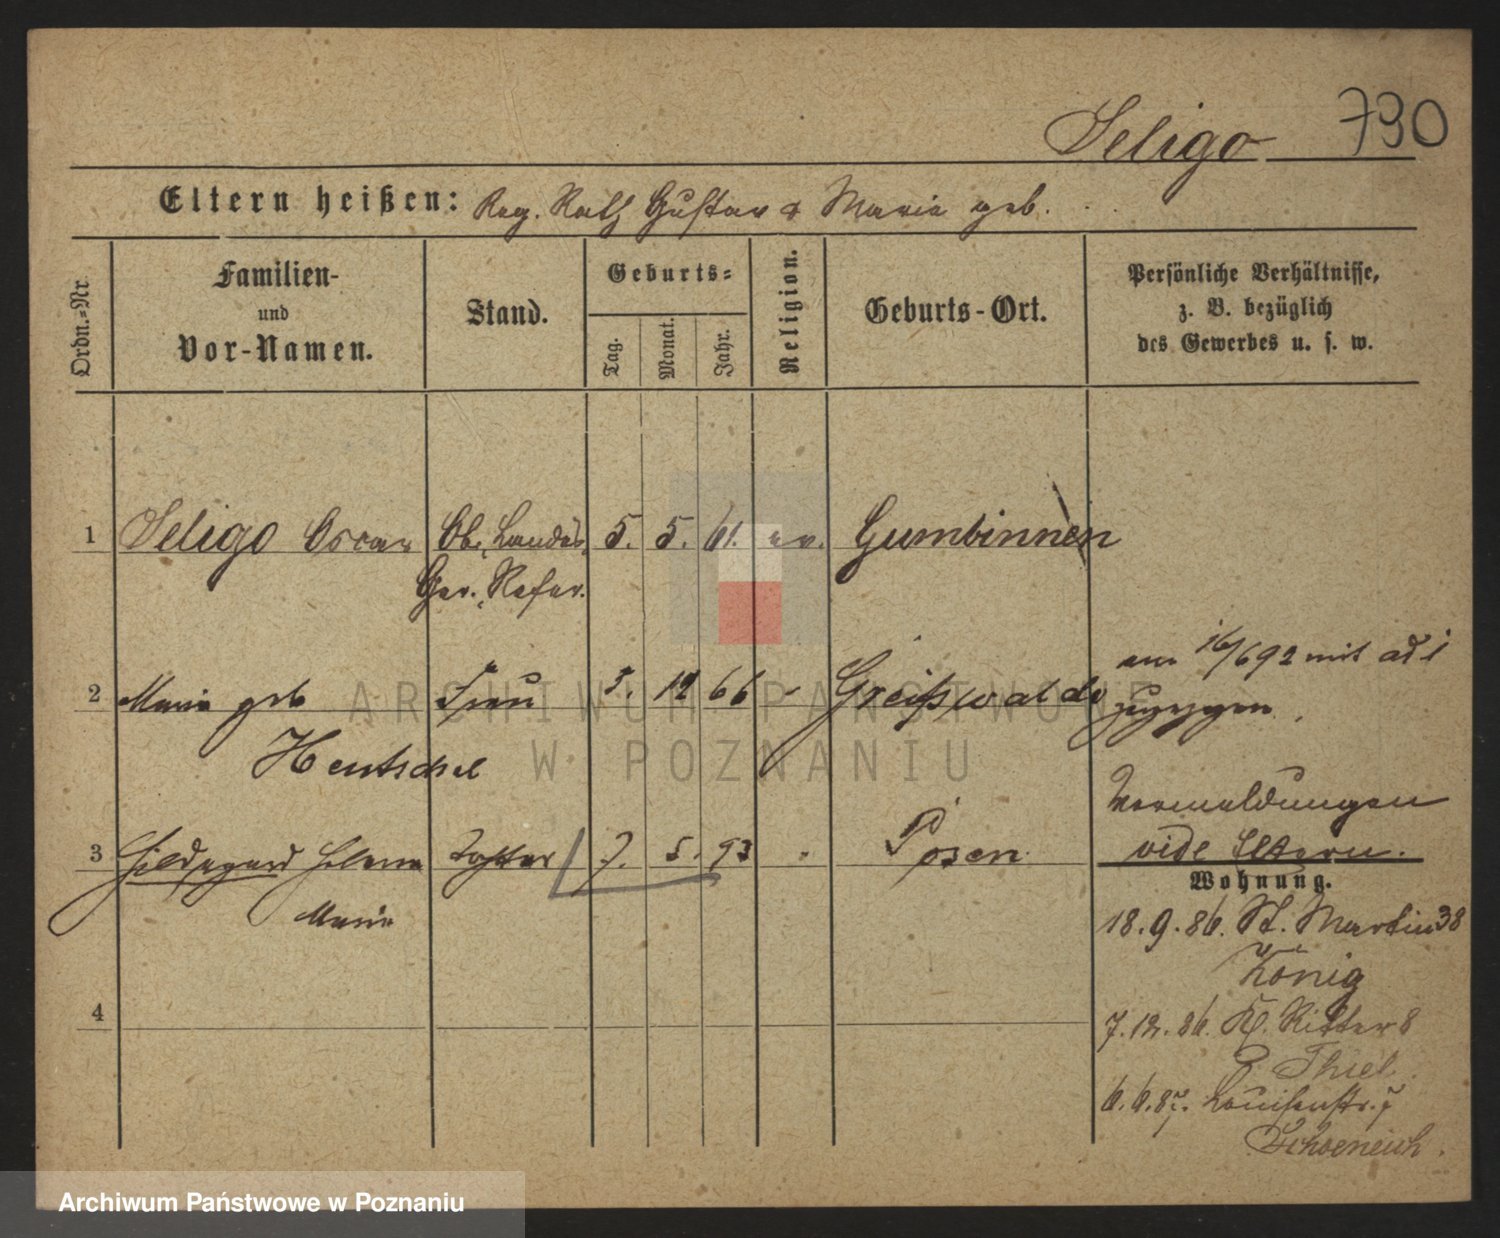 Seligo 790
Eltern heißen: Reg. Rath Gustav & Marie geb. . .
Ordn.-Nr.
Familien-
und
Vor-Namen.
Stand.
Geburts-
Tag.
Monat.
Jahr.
Religion.
Geburts-Ort.
Persönliche Verhältnisse,
z. B. bezüglich
des Gewerbes u. s. w.
1 Seligo Oscar Ob. Landes 5. 5. 61. ev. Gumbinnen
Ger. Refer.
am 16/6 92 mit ad 1
2 Marie geb Frau 5. 12 66 " Greifswalde zugezogen.
Hentschel
Vermeldungen
3 Hildegard Helene Tochter 7. 5. 93 " Posen vide Eltern.
Marie
Wohnung.
18. 9. 86. St. Martin 38
König
4
7. 12. 86. Kl. Ritter 8
Thiel
6. 6. 87. Louisenstr. 7
Schoeneich.
ARCHIWUM PAŃSTWOWE
W POZNANIU
Archiwum Państwowe w Poznaniu